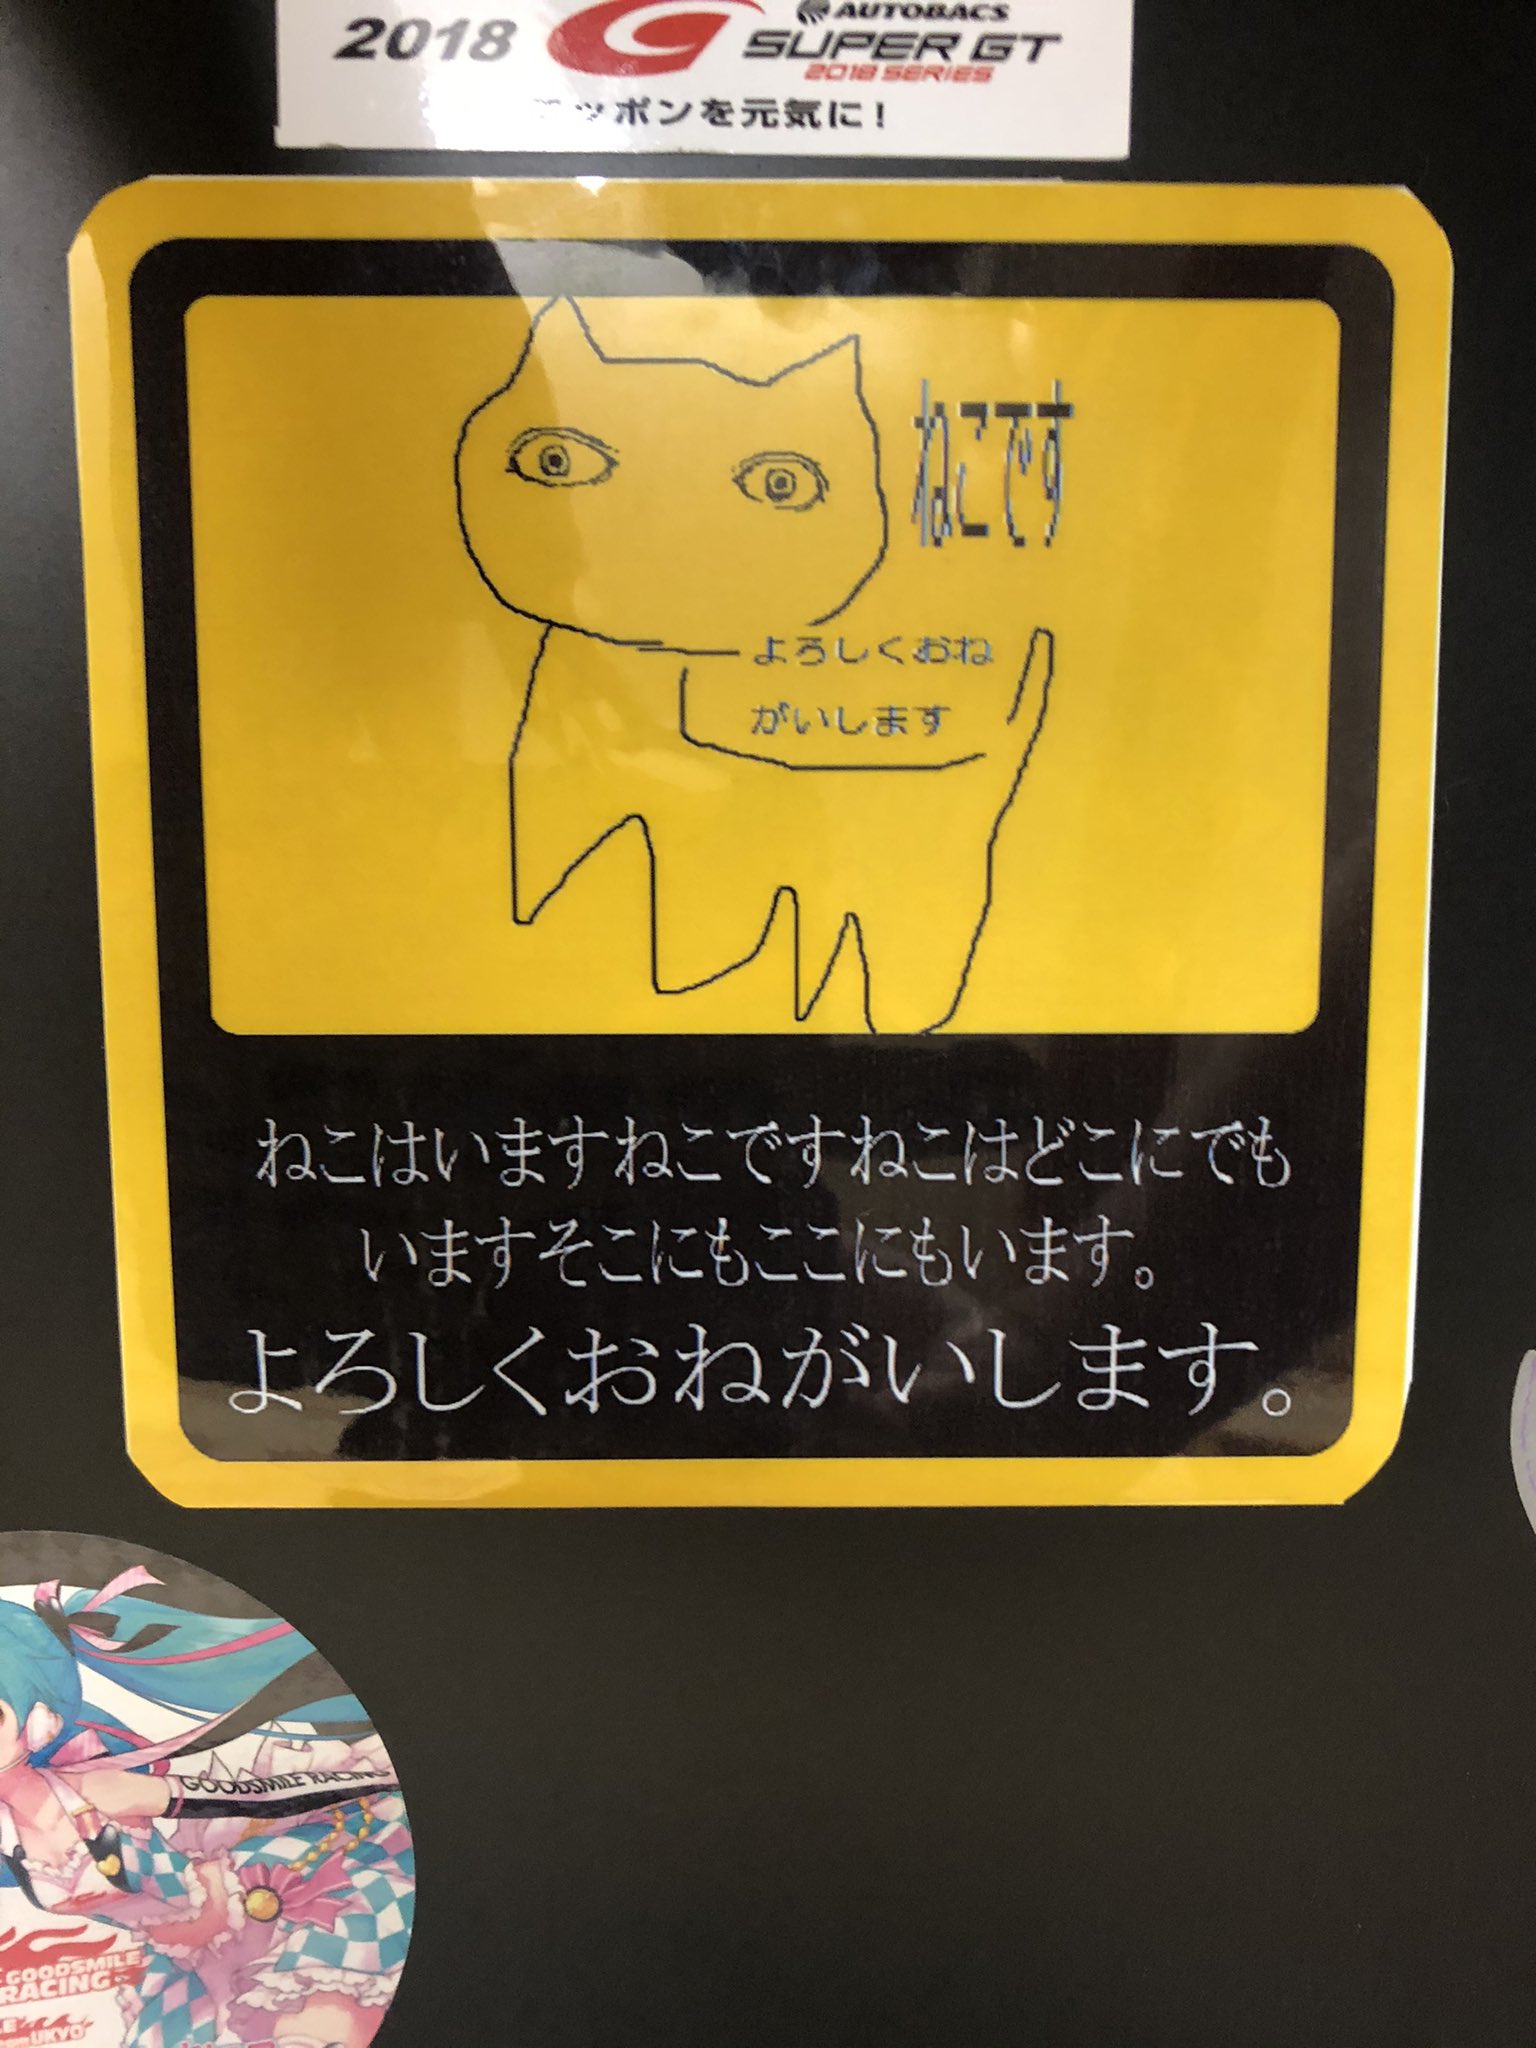 2018
AUTOBACS
SUPER GT
2018 SERIES
ニッポンを元気に!
ねこです
よろしくおね
がいします
ねこはいますねこですねこはどこにでも
いますそこにもここにもいます。
よろしくおねがいします。
GOODSMILE RACING
GOODSMILE
RACING
UKYO